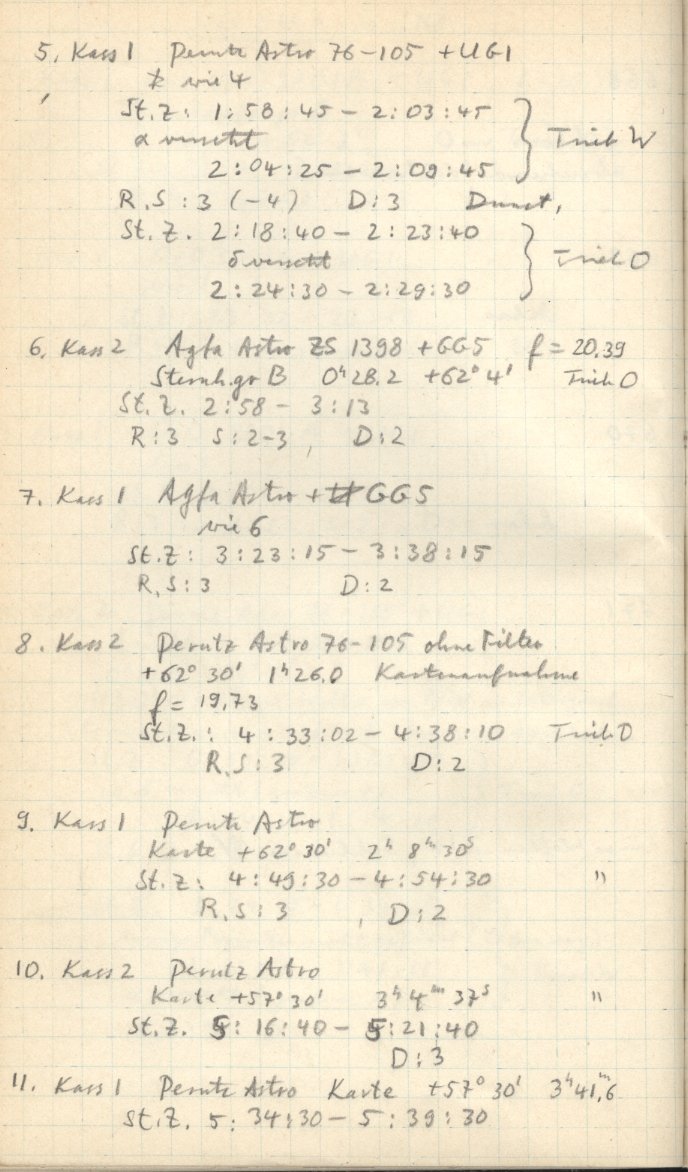 5. Kass 1 Perutz Astro 76-105 + UG1
* wie 4
St.Z: 1:58:45 - 2:03:45
α versetzt Trieb W
2:04:25 - 2:09:45
R.S:3 (-4) D:3 Dunst,
St.Z. 2:18:40 - 2:23:40
δ versetzt Trieb O
2:24:30 - 2:29:30
6. Kass 2 Agfa Astro ZS 1398 + GG5 f = 20.39
Sternh.gr B 0ʰ28.2 +62° 4' Trieb O
St.Z. 2:58 - 3:13
R:3 S:2-3, D:2
7. Kass 1 Agfa Astro + GG5
wie 6
St.Z: 3:23:15 - 3:38:15
R,S:3 D:2
8. Kass 2 Perutz Astro 76-105 ohne Filter
+62° 30' 1ʰ26.0 Kartenaufnahme
f = 19.73
St.Z.: 4:33:02 - 4:38:10 Trieb O
R.S:3 D:2
9. Kass 1 Perutz Astro
Karte +62° 30' 2ʰ 8ᵐ 30ˢ
St.Z: 4:49:30 - 4:54:30 "
R.S:3, D:2
10. Kass 2 Perutz Astro
Karte +57° 30' 3ʰ 4ᵐ 37ˢ "
St.Z. 5:16:40 - 5:21:40
D:3
11. Kass 1 Perutz Astro Karte +57° 30' 3ʰ41,ᵐ6
St.Z. 5:34:30 - 5:39:30